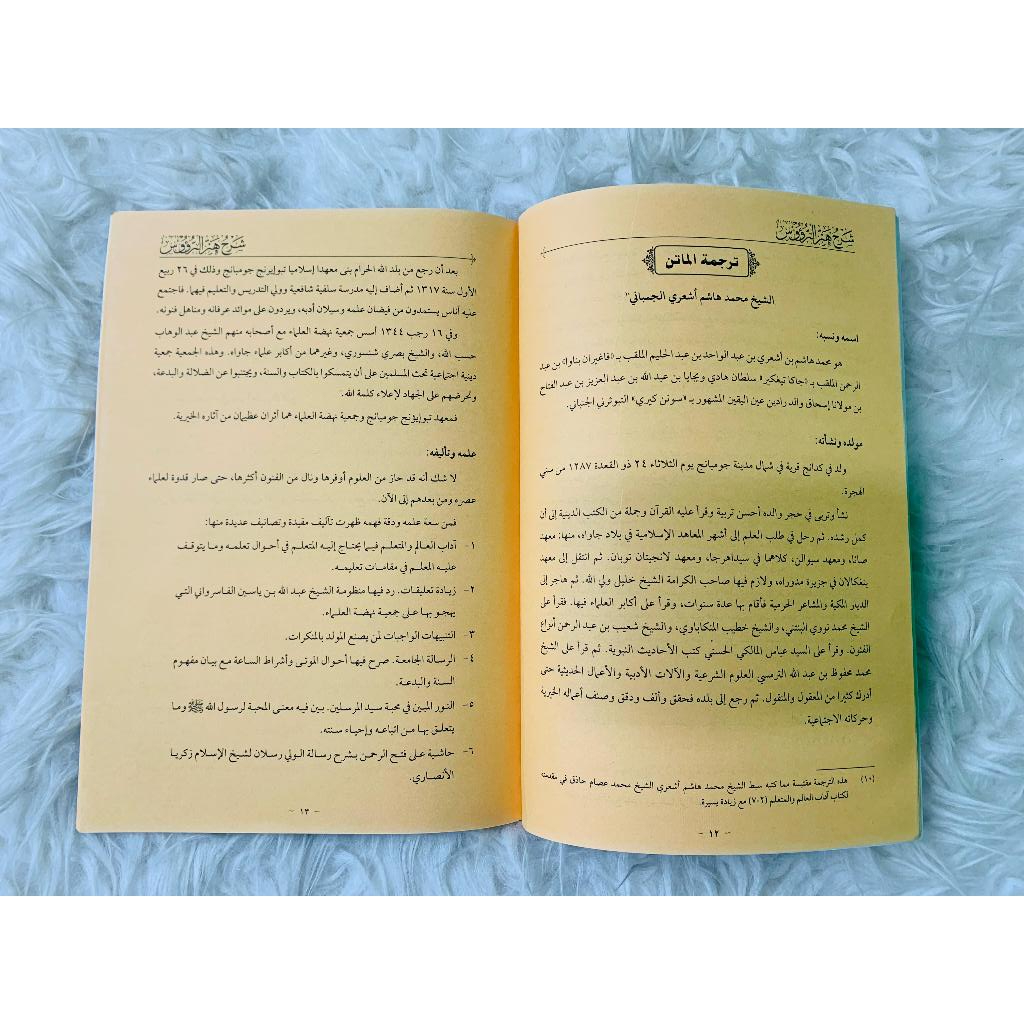 شرح هز الرؤوس
ترجمة الماتن
الشيخ محمد هاشم أشعري الجمباني
اسمه ونسبه:
هو محمد هاشم بن أشعري بن عبد الواحد بن عبد الحليم الملقب بـ «فاغيران بناوا» بن عبد
الرحمن الملقب بـ «جاكا تيغكير» سلطان هادي ويجايا بن عبد الله بن عبد العزيز بن عبد الفتاح
بن مولانا إسحاق والد رادين عين اليقين المشهور بـ «سونن كيري» التبوئرني الجنباني.
مولده ونشأته:
ولد في كدانج قرية في شمال مدينة جومبانج يوم الثلاثاء ٢٤ ذو القعدة ١٢٨٧ من سني
الهجرة.
نشأ وتربى في حجر والده أحسن تربية وقرأ عليه القرآن وجملة من الكتب الدينية إلى أن
كمل رشده. ثم رحل في طلب العلم إلى أشهر المعاهد الإسلامية في بلاد جاواه، منها: معهد
صانا، ومعهد سيوالن، كلاهما في سيداهرجا، ومعهد لانجيتان توبان. ثم انتقل إلى معهد
بنغكالان في جزيرة مدوراه، ولازم فيها صاحب الكرامة الشيخ خليل ولي الله. ثم هاجر إلى
الديار المكية والمشاعر الحرمية فأقام بها عدة سنوات، وقرأ على أكابر العلماء فيها. فقرأ على
الشيخ محمد نووي البنتني، والشيخ خطيب المنكاباوي، والشيخ شعيب بن عبد الرحمن أنواع
الفنون. وقرأ على السيد عباس المالكي الحسني كتب الأحاديث النبوية. ثم قرأ على الشيخ
محمد محفوظ بن عبد الله الترمسي العلوم الشرعية والآلات الأدبية والأعمال الحديثية حتى
أدرك كثيرا من المعقول والمنقول. ثم رجع إلى بلده فحقق وألف ودقق وصنف أعماله الخيرية
وحركاته الاجتماعية.
(١٠) هذه الترجمة مقتبسة مما كتبه سبط الشيخ محمد هاشم أشعري الشيخ محمد عصام حاذق في مقدمته
لكتاب آداب العالم والمتعلم (٢-٧) مع زيادة يسيرة.
- ١٢ -
شرح هز الرؤوس
بعد أن رجع من بلد الله الحرام بنى معهدا إسلاميا تبوإيرنج جومبانج وذلك في ٢٦ ربيع
الأول سنة ١٣١٧ ثم أضاف إليه مدرسة سلفية شافعية وولي التدريس والتعليم فيهما. فاجتمع
عليه أناس يستمدون من فيضان علمه وسيلان أدبه، ويردون على موائد عرفانه ومناهل فنونه.
وفي ١٦ رجب ١٣٤٤ أسس جمعية نهضة العلماء مع أصحابه منهم الشيخ عبد الوهاب
حسب الله، والشيخ بصري شنسوري، وغيرهما من أكابر علماء جاواه. وهذه الجمعية جمعية
دينية اجتماعية تحث المسلمين على أن يتمسكوا بالكتاب والسنة، ويجتنبوا عن الضلالة والبدعة،
وتحرضهم على الجهاد لإعلاء كلمة الله.
فمعهد تبوإيرنج جومبانج وجمعية نهضة العلماء هما أثران عظيمان من آثاره الخيرية.
علمه وتأليفه:
لا شك أنه قد حاز من العلوم أوفرها ونال من الفنون أكثرها، حتى صار قدوة لعلماء
عصره ومن بعدهم إلى الآن.
فمن سعة علمه ودقة فهمه ظهرت تآليف مفيدة وتصانيف عديدة منها:
١- آداب العالم والمتعلم فيما يحتاج إليه المتعلم في أحوال تعلمه وما يتوقف
عليه المعلم في مقامات تعليمه.
٢- زيادة تعليقات. رد فيها منظومة الشيخ عبد الله بن ياسين الفاسرواني التي
يهجو بها على جمعية نهضة العلماء.
٣- التنبيهات الواجبات لمن يصنع المولد بالمنكرات.
٤- الرسالة الجامعة. صرح فيها أحوال الموتى وأشراط الساعة مع بيان مفهوم
السنة والبدعة.
٥- النور المبين في محبة سيد المرسلين. بين فيه معنى المحبة لرسول الله ﷺ وما
يتعلق بها من اتباعه وإحياء سنته.
٦- حاشية على فتح الرحمن بشرح رسالة الولي رسلان لشيخ الإسلام زكريا
الأنصاري.
- ١٣ -